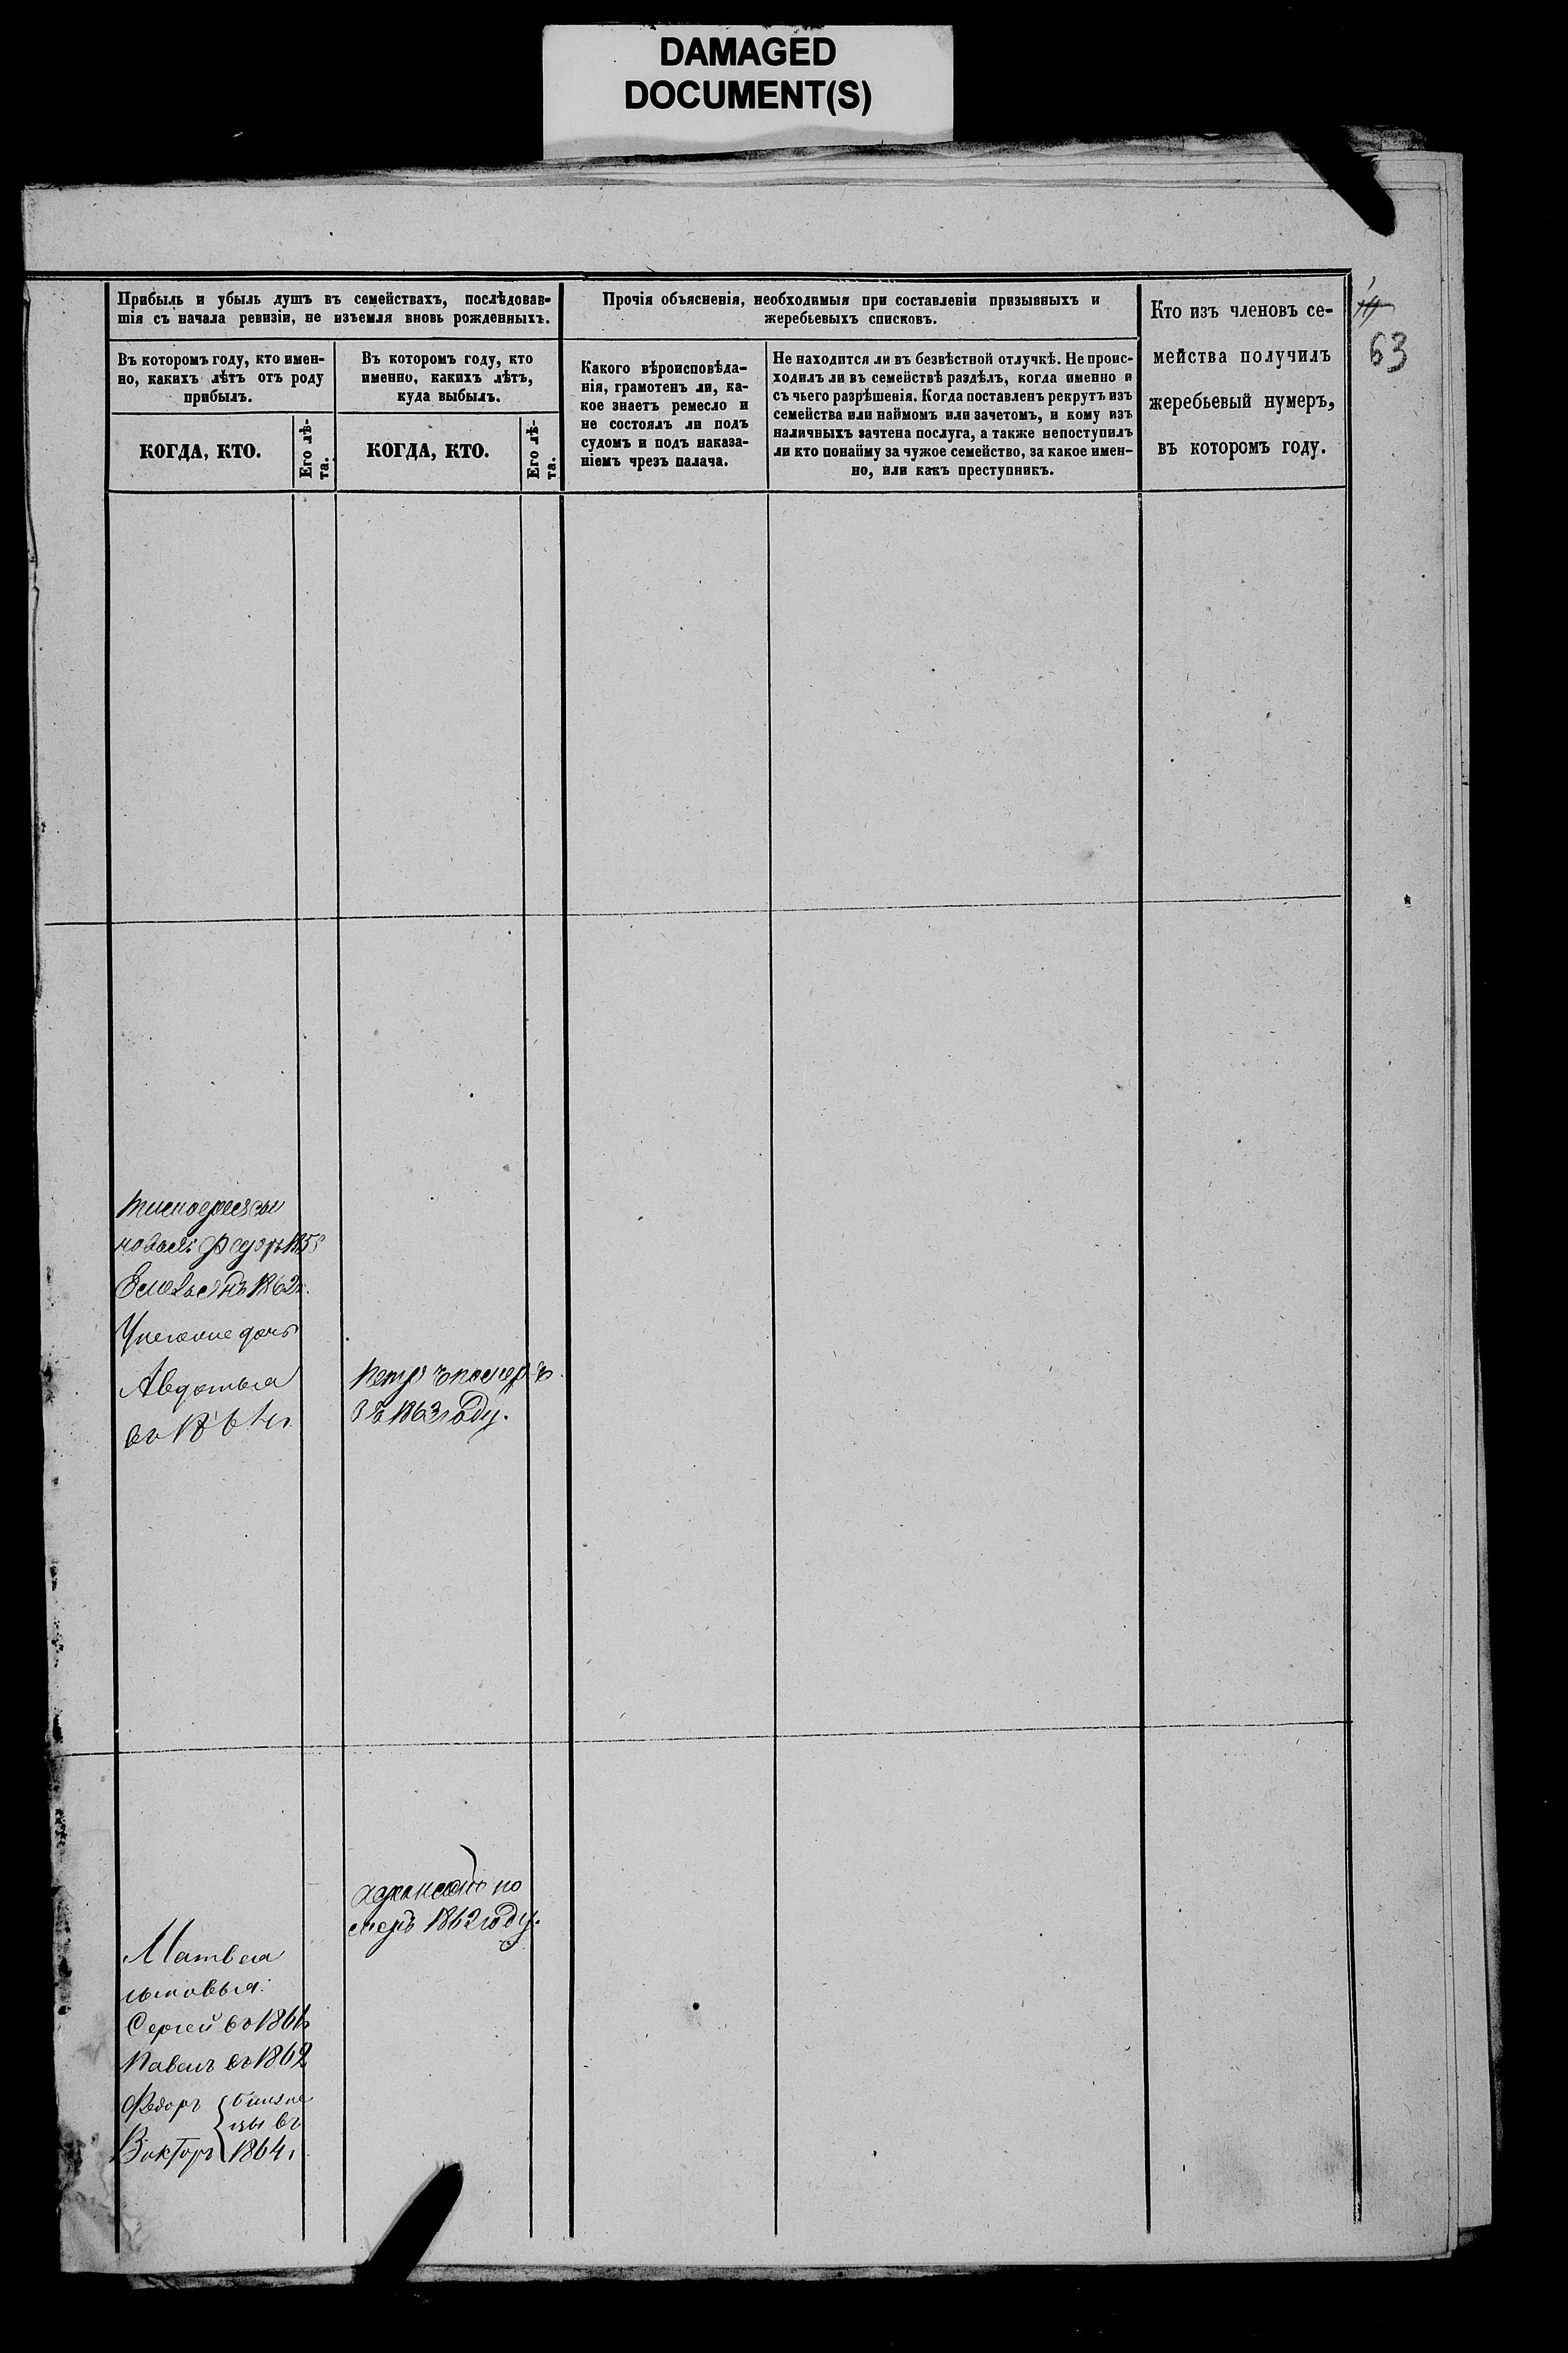 DAMAGED
DOCUMENT(S)
Прибыль и убыль душъ въ семействахъ, послѣдовав-
шія съ начала ревизіи, не изъемля вновь рожденныхъ.
Прочія объясненія, необходимыя при составленіи призывныхъ и
жеребьевыхъ списковъ.
Кто изъ членовъ се-
мейства получилъ
жеребьевый нумеръ,
въ которомъ году.
63
Въ которомъ году, кто имен-
но, какихъ лѣтъ отъ роду
прибылъ.
Въ которомъ году, кто
именно, какихъ лѣтъ,
куда выбылъ.
Какого вѣроисповѣда-
нія, грамотенъ ли, ка-
кое знаетъ ремесло и
не состоялъ ли подъ
судомъ и подъ наказа-
ніемъ чрезъ палача.
Не находится ли въ безвѣстной отлучкѣ. Не проис-
ходилъ ли въ семействѣ раздѣлъ, когда именно и
съ чьего разрѣшенія. Когда поставленъ рекрутъ изъ
семейства или наймомъ или зачетомъ, и кому изъ
наличныхъ зачтена послуга, а также непоступилъ
ли кто понайму за чужое семейство, за какое имен-
но, или какъ преступникъ.
КОГДА, КТО.
Его лѣ-
та.
КОГДА, КТО.
Его лѣ-
та.
Федоръ
Емельянъ 1862г.
дочь
Авдотья
въ 1864г.
Петръ померъ
въ 1863 году.
по
меръ 1862 году.
Матвея
сыновья:
Сергей въ 1861г
Павелъ въ 1862
Федоръ близне
цы въ
Викторъ 1864г.